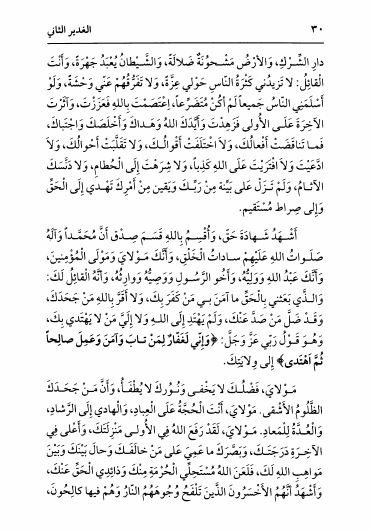 ٣٠ الغدير الثاني
دارِ الشِّرْكِ، وَالأَرْضُ مَشْحُونَةٌ ضَلالَةً، وَالشَّيْطَانُ يُعْبَدُ جَهْرَةً، وَأَنْتَ
القائِلُ: لا تَزيدُني كَثْرَةُ النّاسِ حَوْلي عِزَّةً، وَلا تَفَرُّقُهُمْ عَنّي وَحْشَةً، وَلَوْ
أَسْلَمَنِي النّاسُ جَميعاً لَمْ أَكُنْ مُتَضَرِّعاً، اِعْتَصَمْتَ بِاللهِ فَعَزَزْتَ، وَآثَرْتَ
الآخِرَةَ عَلَى الأُولى فَزَهِدْتَ وَأَيَّدَكَ اللهُ وَهَداكَ وَأَخْلَصَكَ وَاجْتَباكَ،
فَما تَناقَضَتْ أَفْعالُكَ، وَلاَ اخْتَلَفَتْ أَقْوالُكَ، وَلاَ تَقَلَّبَتْ أَحْوالُكَ، وَلاَ
ادَّعَيْتَ وَلاَ افْتَرَيْتَ عَلَى اللهِ كَذِباً، وَلا شَرِهْتَ إِلَى الْحُطامِ، وَلا دَنَّسَكَ
الآثامُ، وَلَمْ تَزَلْ عَلى بَيِّنَة مِنْ رَبِّكَ وَيَقين مِنْ أَمْرِكَ تَهْدي إِلَى الْحَقِّ
وَإِلى صِراط مُسْتَقيم.
أَشْهَدُ شَهادَةَ حَقّ، وَأُقْسِمُ بِاللهِ قَسَمَ صِدْق أَنَّ مُحَمَّداً وَآلَهُ
صَلَواتُ اللهِ عَلَيْهِمْ ساداتُ الْخَلْقِ، وَأَنَّكَ مَوْلايَ وَمَوْلَى الْمُؤْمِنينَ،
وَأَنَّكَ عَبْدُ اللهِ وَوَلِيُّهُ، وَأَخُو الرَّسُولِ وَوَصِيُّهُ وَوارِثُهُ، وَأَنَّهُ الْقائِلُ لَكَ:
وَالَّذي بَعَثَني بِالْحَقِّ ما آمَنَ بي مَنْ كَفَرَ بِكَ، وَلا أَقَرَّ بِاللهِ مَنْ جَحَدَكَ،
وَقَدْ ضَلَّ مَنْ صَدَّ عَنْكَ، وَلَمْ يَهْتَدِ إِلَى اللهِ وَلا إِلَيَّ مَنْ لا يَهْتَدي بِكَ،
وَهُوَ قَوْلُ رَبّي عَزَّ وَجَلَّ: ﴿وَإِنّي لَغَفّارٌ لِمَنْ تابَ وَآمَنَ وَعَمِلَ صالِحاً
ثُمَّ اهْتَدى﴾ إِلى وِلايَتِكَ.
مَوْلايَ، فَضْلُكَ لا يَخْفى وَنُورُكَ لا يُطْفَأُ، وَأَنَّ مَنْ جَحَدَكَ
الظَّلُومُ الأَشْقى. مَوْلايَ، أَنْتَ الْحُجَّةُ عَلَى الْعِبادِ، وَالْهادي إِلَى الرَّشادِ،
وَالْعُدَّةُ لِلْمَعادِ. مَوْلايَ، لَقَدْ رَفَعَ اللهُ فِي الأُولى مَنْزِلَتَكَ، وَأَعْلى فِي
الآخِرَةِ دَرَجَتَكَ، وَبَصَّرَكَ ما عَمِيَ عَلى مَنْ خالَفَكَ وَحالَ بَيْنَكَ وَبَيْنَ
مَواهِبِ اللهِ لَكَ، فَلَعَنَ اللهُ مُسْتَحِلِّي الْحُرْمَةِ مِنْكَ وَذائِدِي الْحَقِّ عَنْكَ،
وَأَشْهَدُ أَنَّهُمُ الأَخْسَرُونَ الَّذينَ تَلْفَحُ وُجُوهَهُمُ النّارُ وَهُمْ فيها كالِحُونَ،